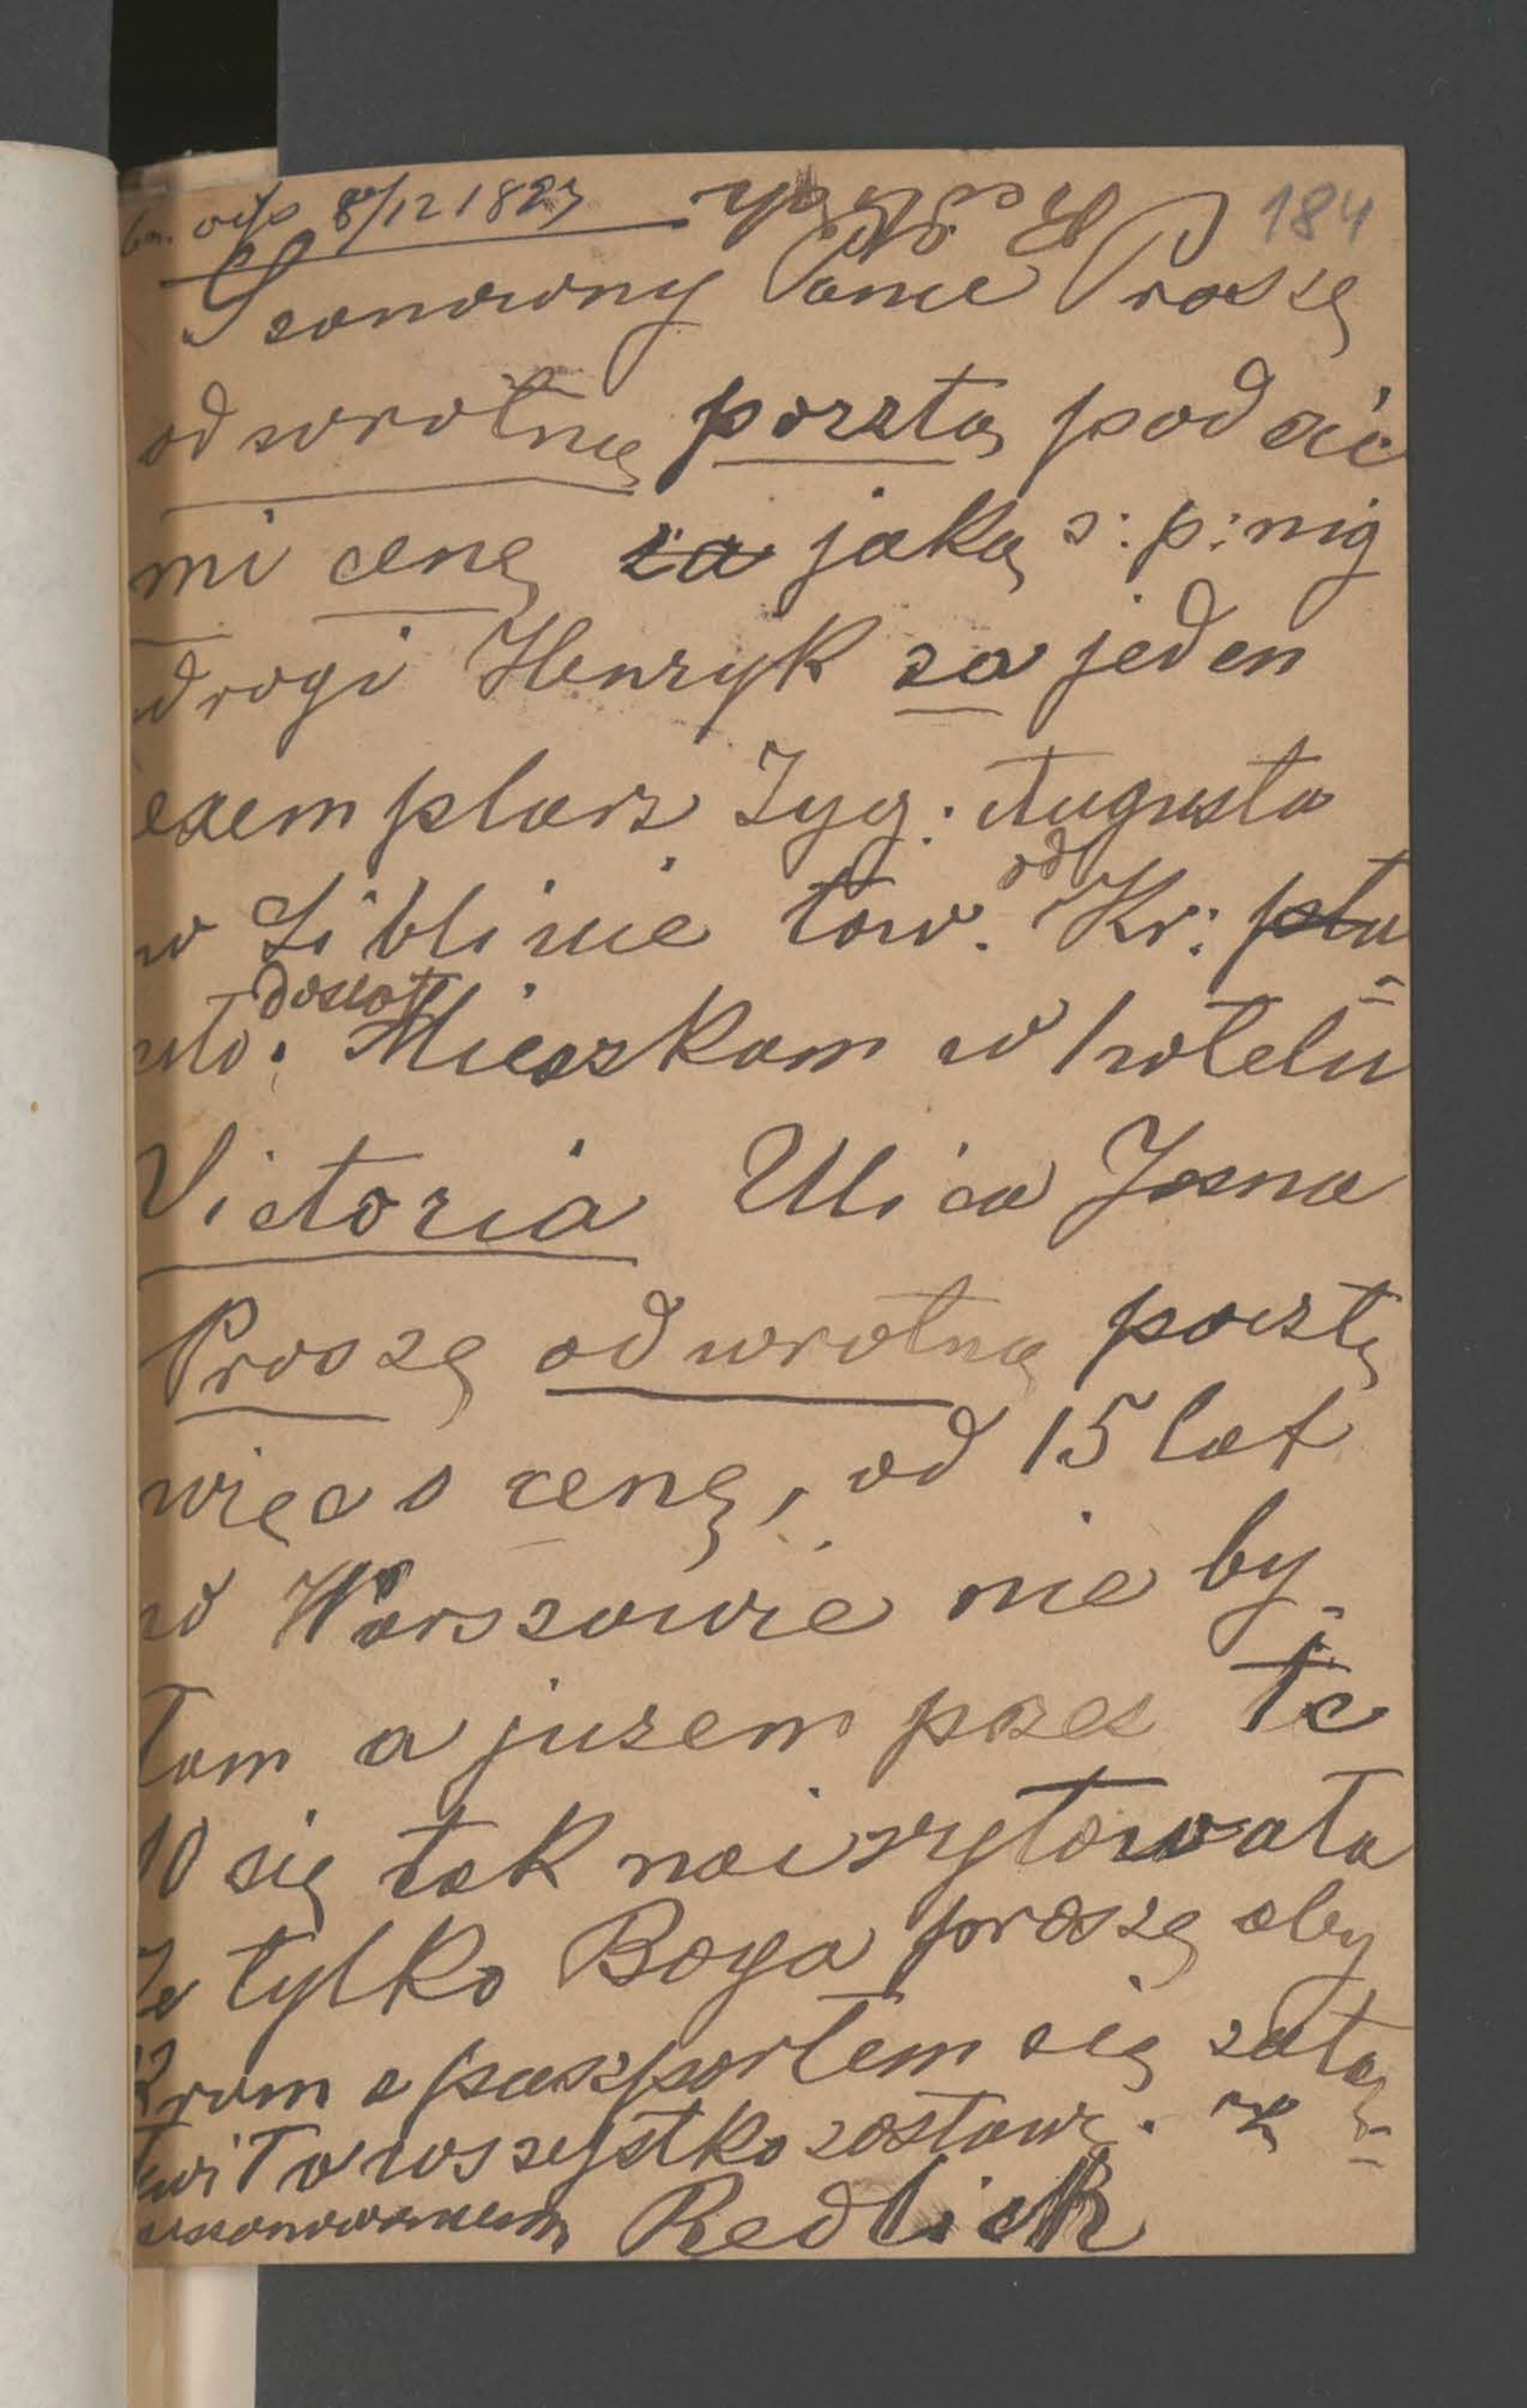 odp 8/12 1883 184
Szanowny Panie Proszę
odwrotną pocztą podać
mi cenę za jaką ś: p: mój
drogi Henryk za jeden
exemplarz Zyg: Augusta
w Liblinie tow. od Kr:
dostał. Mieszkam w hotelu
Victoria Ulica Jasna
Proszę odwrotną pocztą
więc o cenę, od 15 lat
w Warszawie nie by-
łam a jużem przez te
10 się tak nairytowała
Ja tylko Boga proszę aby
kram z paszportem się zała-
twił a wszystko zostawię. z
uszanowaniem Redlich